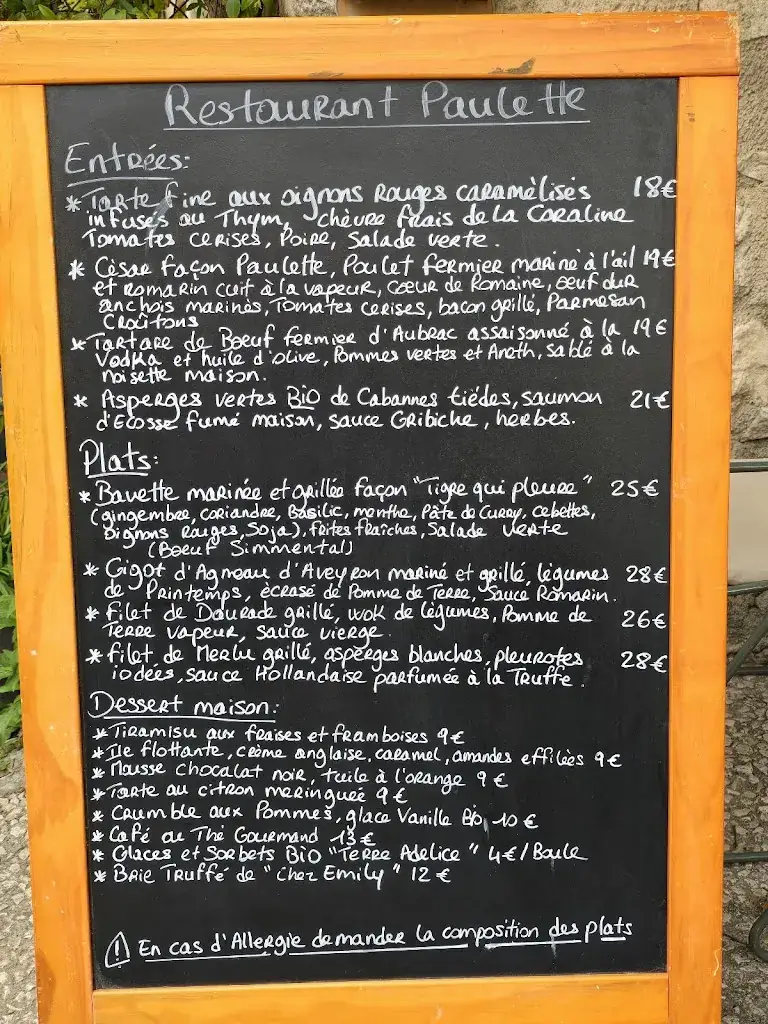 Restaurant Paulette
Entrées:
* Tarte fine aux oignons Rouges caramélisés 18€
infusés au Thym, chèvre frais de la Coraline
Tomates cerises, Poire, Salade verte.
* César façon Paulette, Poulet fermier mariné à l'ail 19€
et romarin cuit à la vapeur, coeur de Romaine, oeuf dur
anchois marinés, Tomates cerises, bacon grillé, Parmesan
Croûtons
* Tartare de Boeuf fermier d'Aubrac assaisonné à la 19€
Vodka et huile d'olive, Pommes vertes et Aneth, sablé à la
noisette maison.
* Asperges vertes BIO de Cabannes tièdes, saumon 21€
d'Ecosse fumé maison, sauce Gribiche, herbes.
Plats:
* Bavette marinée et grillée façon "Tigre qui pleure" 25€
(gingembre, coriandre, Basilic, menthe, Pâte de Curry, cebettes,
oignons Rouges, Soja), frites fraîches, Salade verte
(Boeuf Simmental)
* Gigot d'Agneau d'Aveyron mariné et grillé, légumes 28€
de Printemps, écrasé de Pomme de Terre, Sauce Romarin.
* filet de Daurade grillé, wok de légumes, Pomme de 26€
Terre vapeur, sauce vierge.
* filet de Merlu grillé, asperges blanches, pleurotes 28€
iodées, sauce Hollandaise parfumée à la Truffe.
Dessert maison:
* Tiramisu aux fraises et framboises 9€
* Ile flottante, crème anglaise, caramel, amandes effilées 9€
* Mousse chocolat noir, tuile à l'orange 9€
* Tarte au citron meringuée 9€
* Crumble aux Pommes, glace Vanille Bio, 10€
* Café ou Thé Gourmand 13€
* Glaces et Sorbets BIO "Terre Adelice" 4€/Boule
* Brie Truffé de "Chez Emily" 12€
! En cas d'Allergie demander la composition des plats